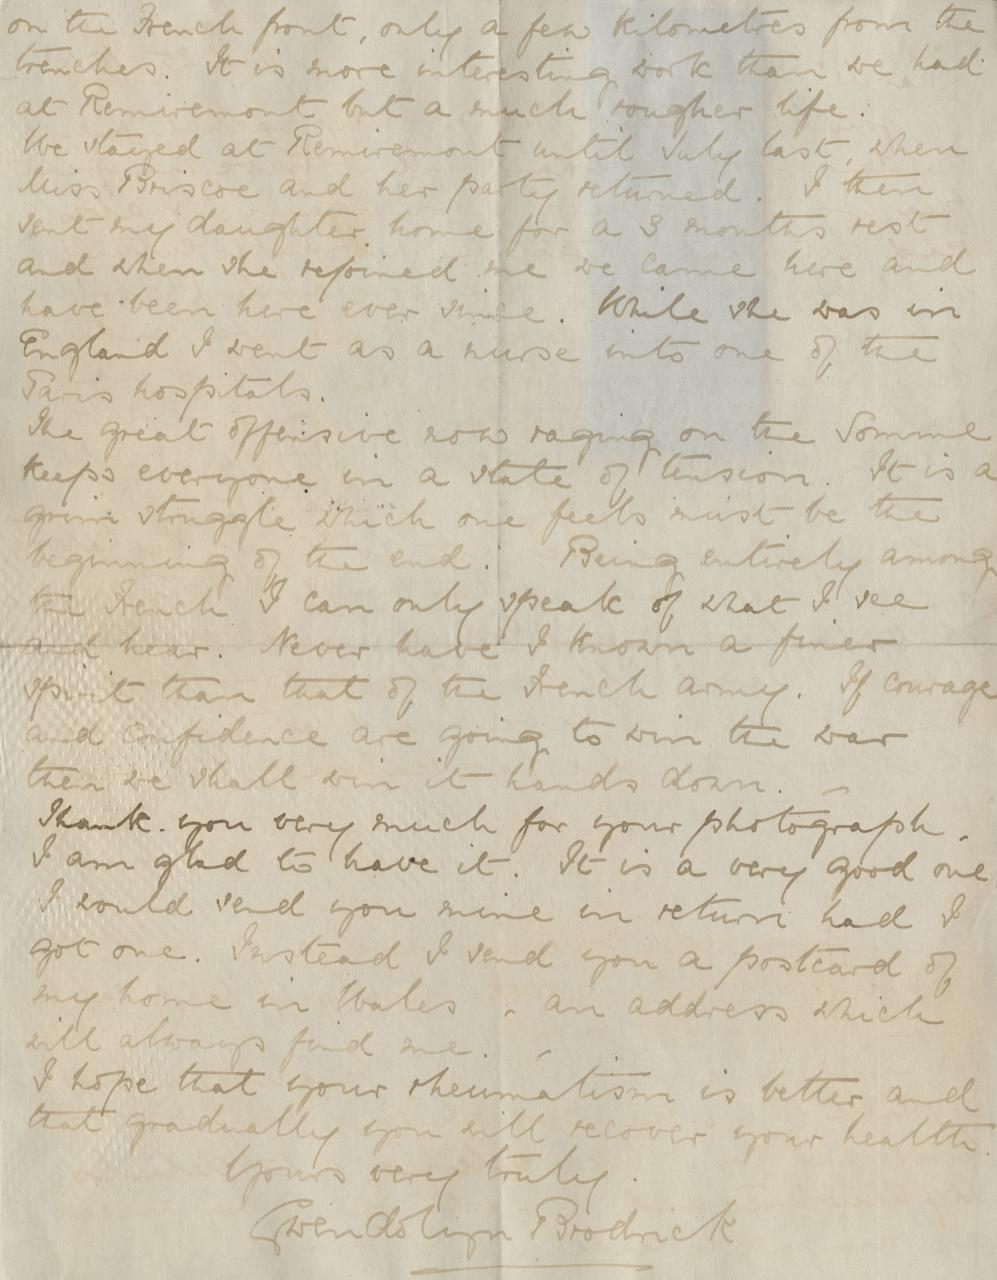 on the French front, only a few kilometres from the
trenches. It is more interesting work than we had
at Remiremont but a much rougher life.
We stayed at Remiremont until July last, when
Miss Briscoe and her party returned. I then
sent my daughter home for a 3 months rest
and when she rejoined me we came here and
have been here ever since. While she was in
England I went as a nurse into one of the
Paris hospitals.
The great offensive now raging on the Somme
keeps everyone in a state of tension. It is a
grim struggle which one feels must be the
beginning of the end. Being entirely among
the French I can only speak of what I see
and hear. Never have I known a finer
spirit than that of the French army. If courage
and confidence are going to win the war
then we shall win it hands down. –
Thank you very much for your photograph.
I am glad to have it. It is a very good one
I would send you mine in return had I
got one. Instead I send you a postcard of
my home in Wales - an address which
will always find me. –
I hope that your rheumatism is better and
that gradually you will recover your health.
Yours very truly.
Gwendolyn Brodrick